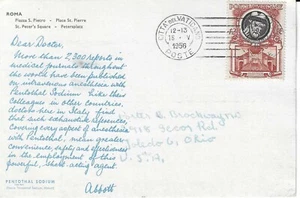 ROMA
Piazza S. Pietro - Place St. Pierre
St. Peter's Square - Petersplatz
CITTA' DEL VATICANO
12-13
1956
POSTE
Dear Doctor:
More than 2,300 reports in
medical journals throughout
the world have been published
on intravenous anesthesia with
Pentothal Sodium. Like their
colleagues in other countries,
doctors here in Italy find
that such exhaustive references,
covering every aspect of anesthesia
with Pentothal, mean greater
convenience, safety and effectiveness
in the employment of this
powerful, short-acting agent.
Abbott
Brockway
Toledo 6, Ohio
U.S.A.
PENTOTHAL SODIUM